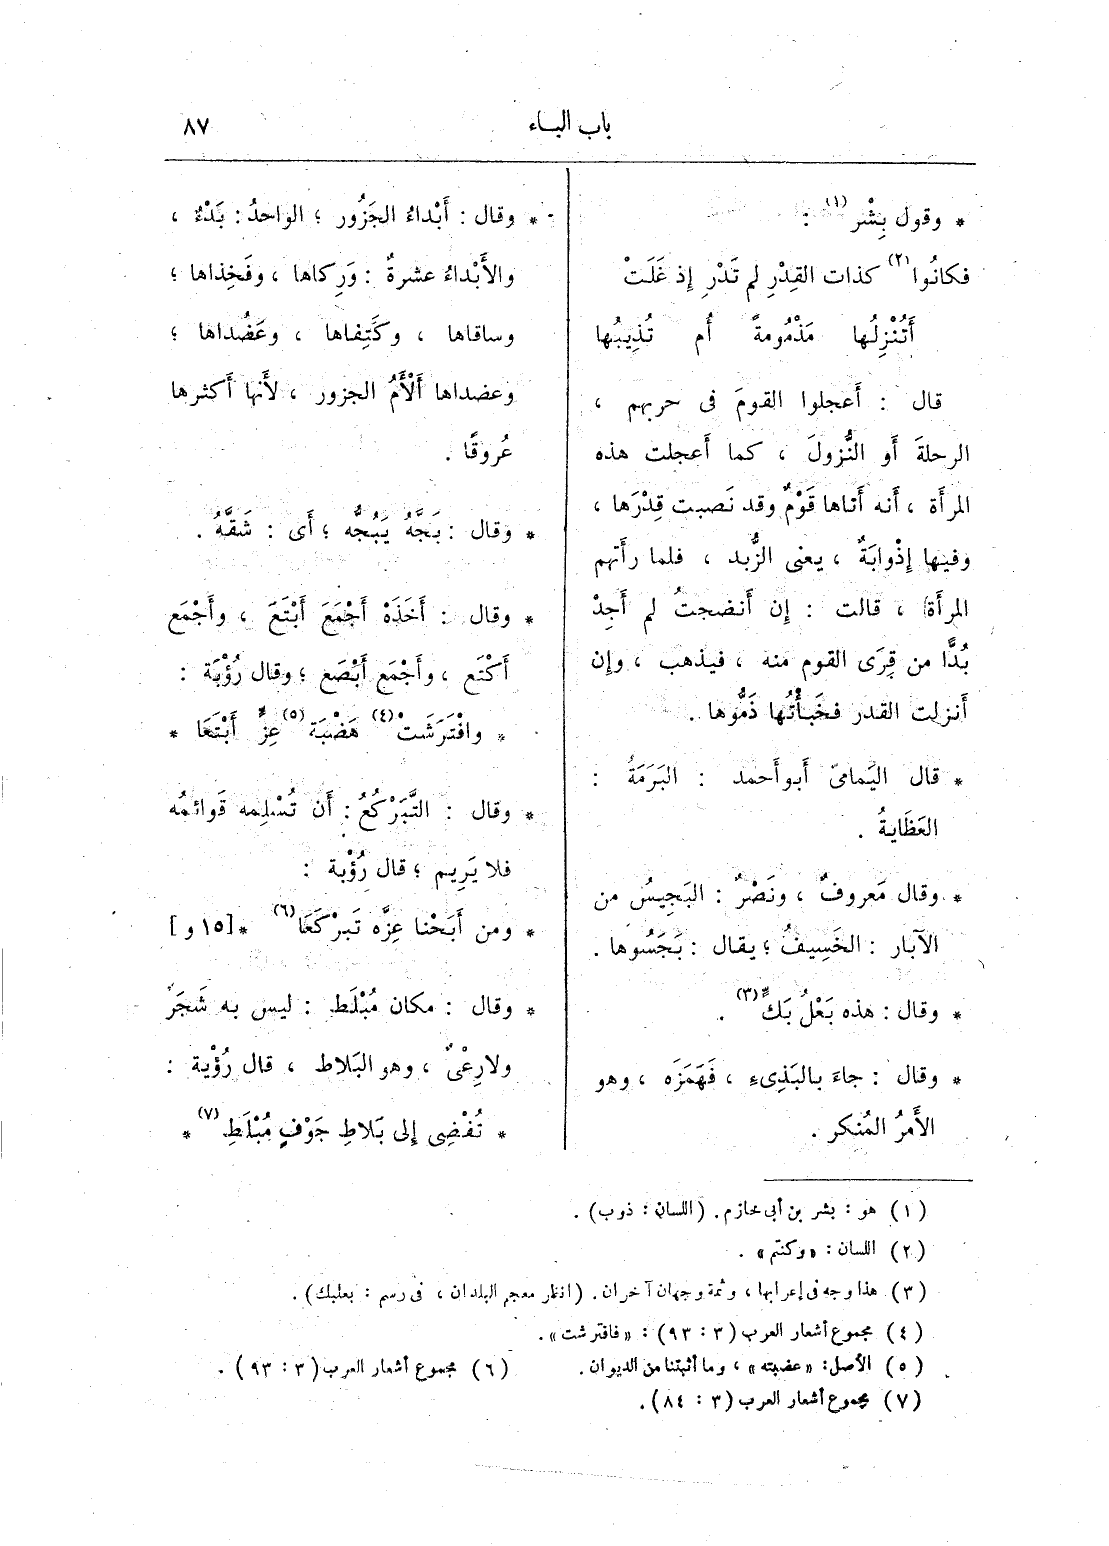 باب البـاء
٨٧
* وقول بِشْر (١) :
فكانُوا (٢) كذات القِدْرِ لم تَدْرِ إذ غَلَتْ
أَتُنْزِلُها مَذْمُومةً أُم تُذِيبُها
قال : أَعجلوا القومَ فى حربهم ،
الرحلةَ أَو النُّزولَ ، كما أَعجلت هذه
المرأَة ، أَنه أَتاها قَوْمٌ وقد نَصبت قِدْرَها ،
وفيها إِذْوابَةٌ ، يعنى الزُّبد ، فلما رأَتهم
المرأَة ، قالت : إِن أَنضجتُ لم أَجِدْ
بُدًّا من قِرَى القوم منه ، فيذهب ، وإِن
أَنزلت القدر فخَبأْتُها ذَمُّوها .
* قال اليَمامىّ أَبو أَحمد : البَرَمَةُ :
العَظَايةُ .
* وقال مَعروفٌ ، ونَصْرٌ : البَجِيسُ من
الآبار : الخَسِيفُ ؛ يقال : بَجَسُوها .
* وقال : هذه بَعْلُ بَكٍّ (٣) .
* وقال : جاءَ بالبَذِىءِ ، فَهَمَزَه ، وهو
الأَمرُ المُنكر .
* وقال : أَبْداءُ الجَزُور ؛ الواحدُ : بَدْءٌ ،
والأَبْداءُ عشرةٌ : وَرِكاها ، وفَخِذاها ؛
وساقاها ، وكَتِفاها ، وعَضُداها ؛
وعضداها أَلْأَمُ الجزور ، لأَنها أَكثرها
عُروقًا .
* وقال : بَجَّهُ يَبُجُّه ؛ أَى : شَقَّهُ .
* وقال : أَخَذَهْ أَجْمَعَ أَبْتَعَ ، وأَجْمَع
أَكْتَع ، وأَجْمَع أَبْصَع ؛ وقال رُؤْبَة :
* وافْتَرَشَتْ (٤) هَضْبَة (٥) عِزٍّ أَبْتَعَا *
* وقال : التَّبَرْكُعُ : أَن تُسْلِمه قَوائمُه
فلا يَرِيم ؛ قال رُؤْبة :
* ومن أَبَحْنا عِزَّه تَبرْكَعَا (٦) * [١٥ و]
* وقال : مكان مُبْلَط : ليس به شَجَرٌ
ولا رِعْىٌ ، وهو البَلاط ، قال رُؤْبة :
* تُفْضِى إِلى بَلاطِ جَوْفٍ مُبْلَطِ (٧) *
(١) هو : بشر بن أبى خازم . (اللسان : ذوب) .
(٢) اللسان : «وكنتم» .
(٣) هذا وجه فى إعرابها ، وثمة وجهان آخران . (انظر معجم البلدان ، فى رسم : بعلبك) .
(٤) مجموع أشعار العرب (٣ : ٩٣) : «فافترشت» .
(٥) الأصل : «عضبته» ، وما أثبتنا من الديوان . (٦) مجموع أشعار العرب (٣ : ٩٣) .
(٧) مجموع أشعار العرب (٣ : ٨٤) .